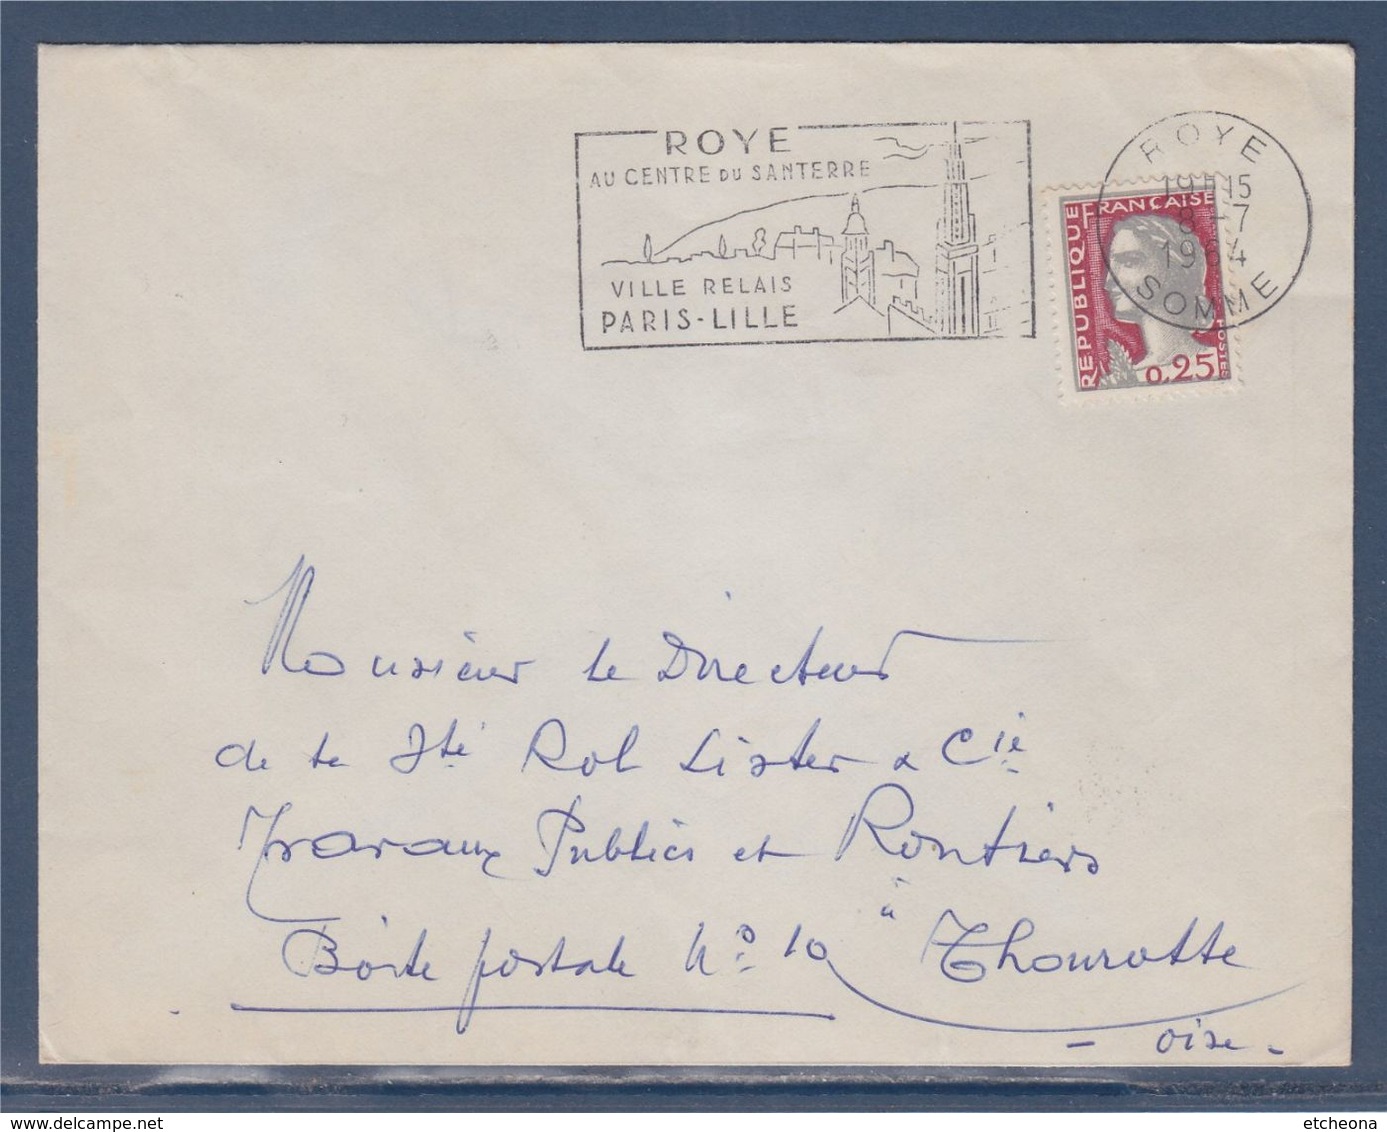 ROYE
AU CENTRE DU SANTERRE
VILLE RELAIS
PARIS-LILLE
ROYE
19H15
8-7
1964
SOMME
REPUBLIQUE FRANÇAISE
POSTES
0,25
Monsieur le Directeur
de la Sté Rol Lister & Cie
Travaux Publics et Routiers
Boîte postale N° 10 à Thourotte
- Oise -
www.delcampe.net
etcheona